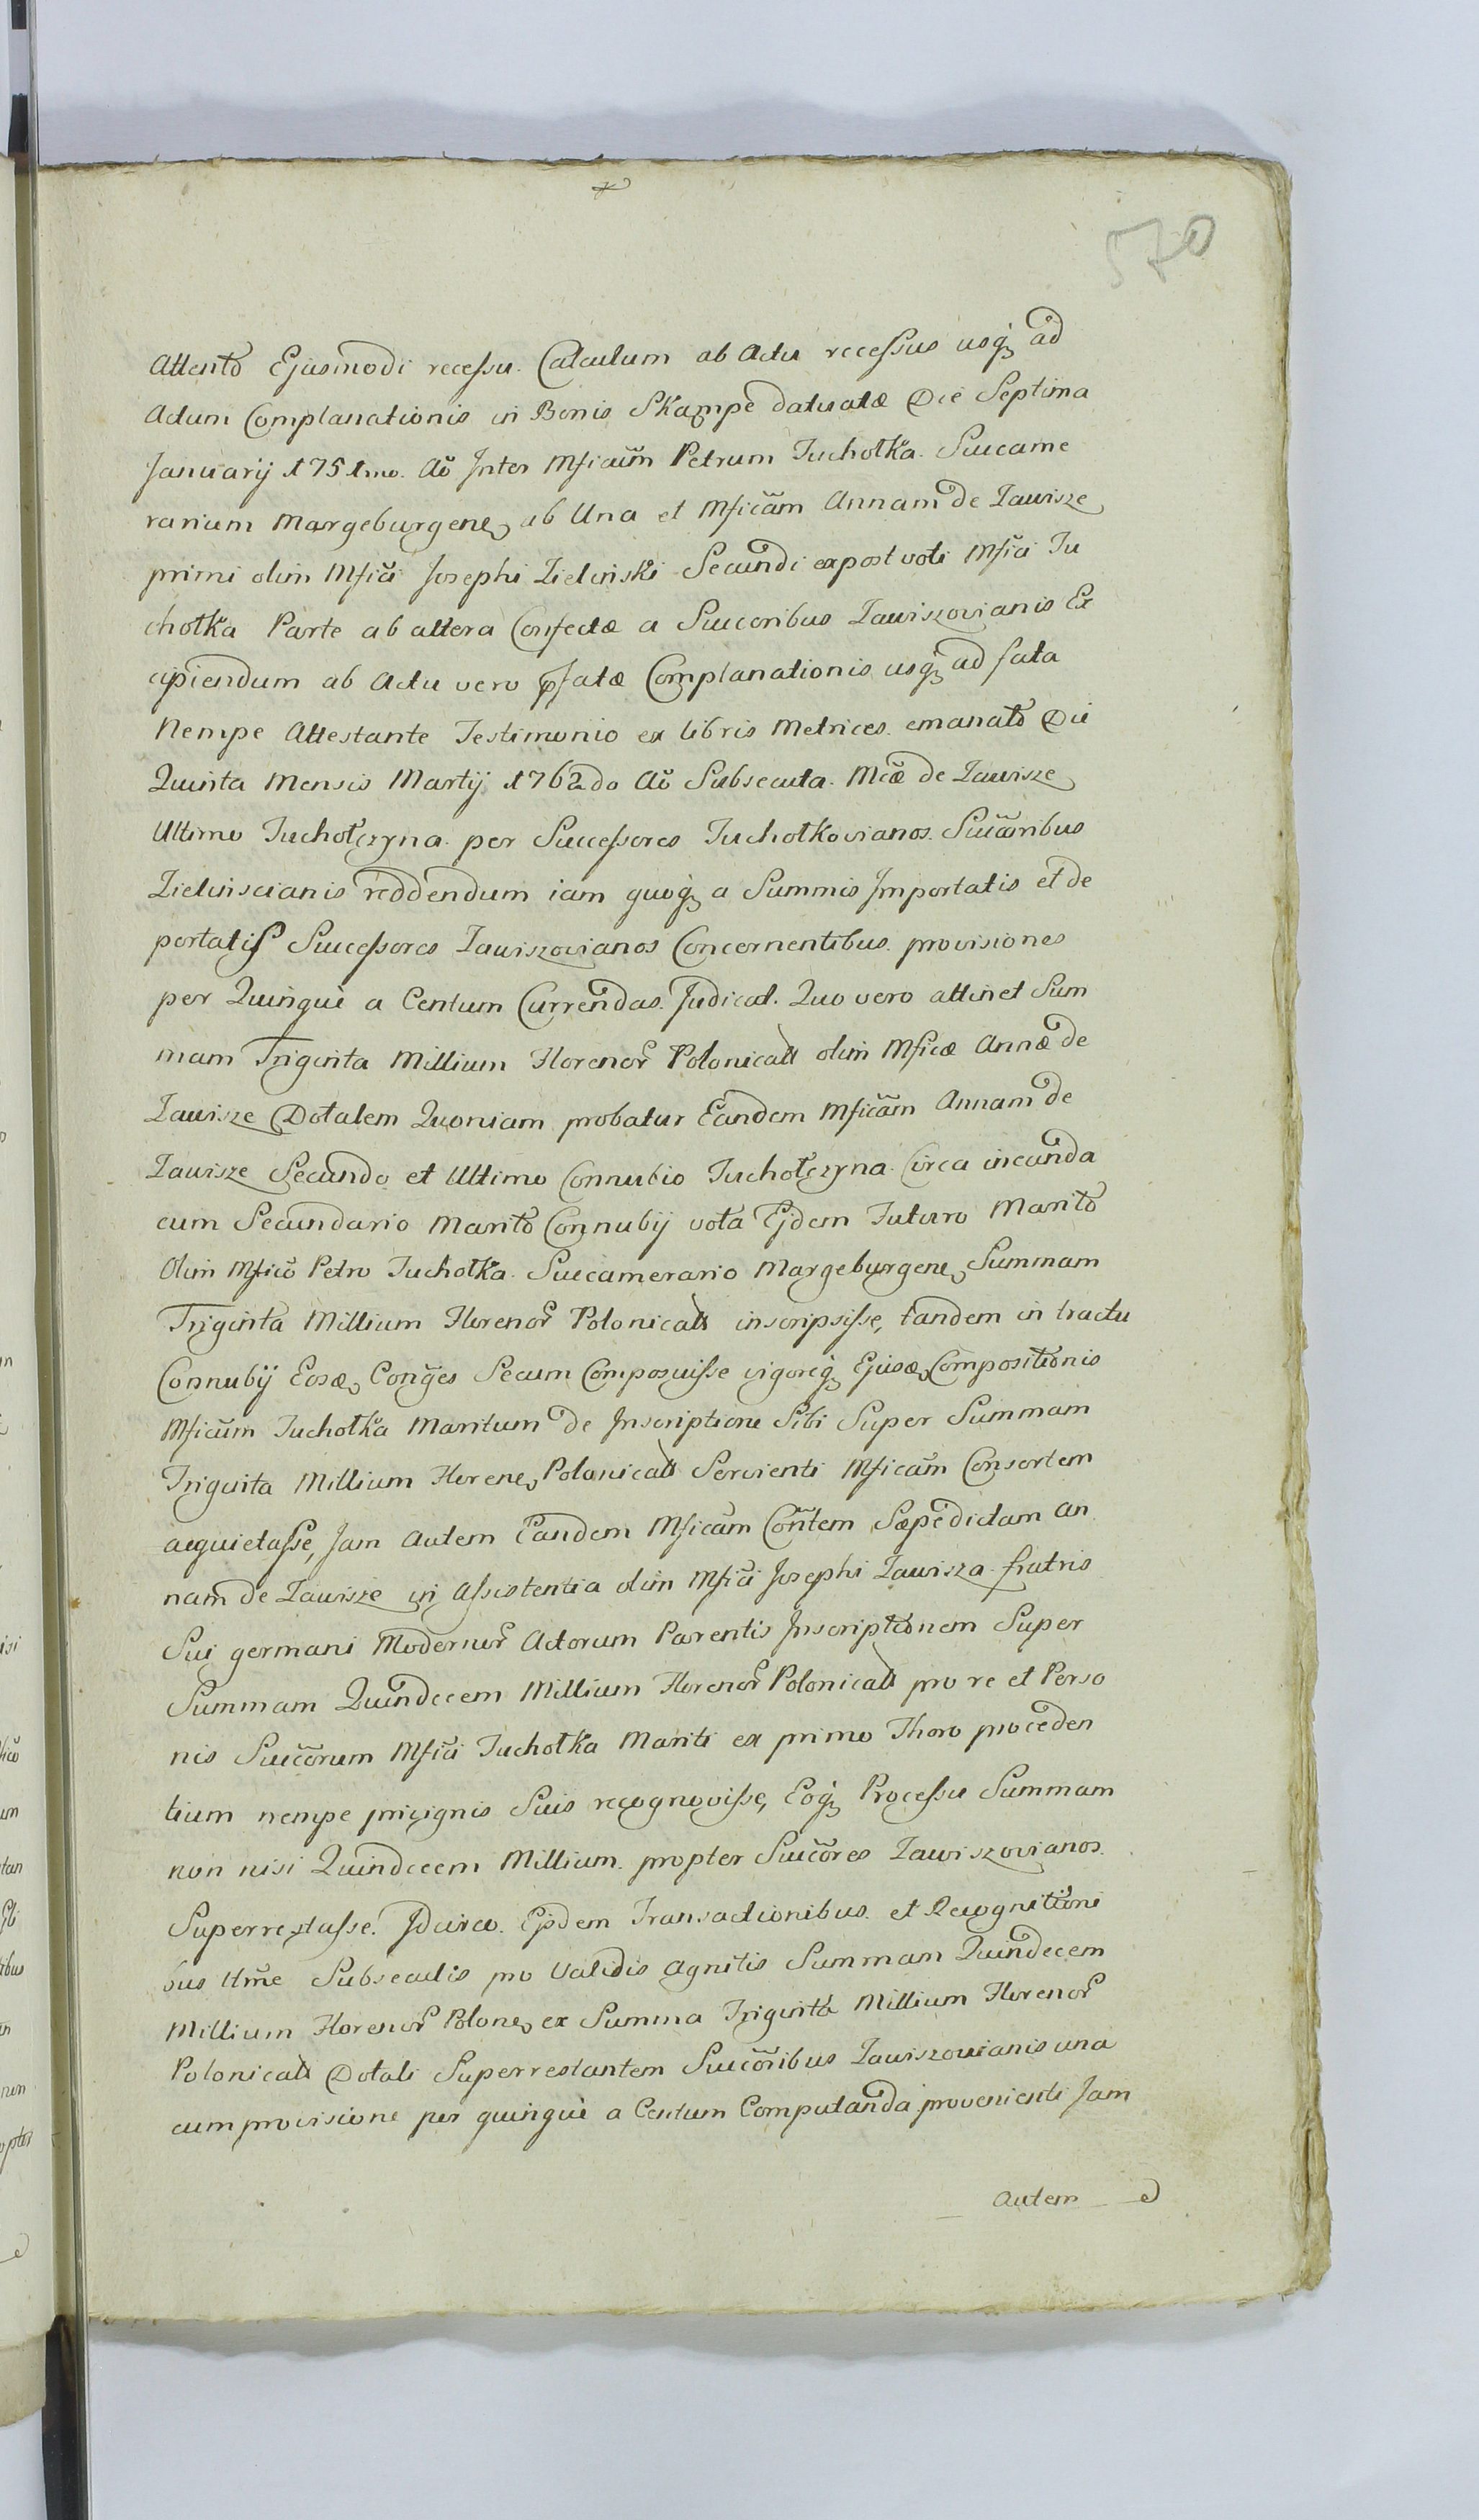 570
Attento Ejusmodi recessu. Calculum ab Actu recessus usq₃ ad
Actum Complanationis in Bonis Skąmpe datuatæ Die Septima
Januarij 1751mo. Aõ Inter Mficum̃ Petrum Tuchołka. Succame
rarium Margeburgene, ab Una et Mficam̃ Annam de Zawisze
primi olim Mfici Josephi Zielinski Secundi expost voti Mfici Tu
chołka Parte ab altera Confectæ a Succoribus Zawiszovianis Ex
cipiendum ab Actu vero pfatæ Complanationis usq₃ ad fata
Nempe Attestante Testimonio ex libris Metrices. emanato Die
Quinta Mensis Martij 1762do Aõ Subsecuta. Mcæ de Zawisze
Ultimo Tuchołczyna. per Successores Tuchołkovianos. Succoribus
Zielinscianis reddendum iam quoq₃ a Summis Importatis et de
portatis Successores Zawiszovianos Concernentibus. provisiones
per Quinque a Centum Currendas. Judicat. Quo vero attinet Sum
mam Triginta Millium Florenor Polonical olim Mficæ Annæ de
Zawisze Dotalem Quoniam probatur Eandem Mficam̃ Annam de
Zawisze Secundo et Ultimo Connubio Tuchołczyna. Circa ineunda
cum Secundario Marito Connubij vota Ejdem Futuro Marito
Olim Mfico Petro Tuchołka. Succamerario Margeburgene, Summam
Triginta Millium Florenor Polonical inscripsisse, tandem in tractu
Connubij Eosd, Conges Secum Composuisse vigoreq₃ Ejusd, Compositionis
Mficum̃ Tuchołka Maritum de Inscriptione Sibi Super Summam
Triginta Millium Florene, Polonical Servienti Mficam̃ Consortem
acquietasse, Jam Autem Eandem Mficam̃ Cont̃em Sæpedictam An
nam de Zawisze in Assistentia olim Mfici Josephi Zawisza fratris
Sui germani Modernor Actorum Parentis Inscriptionem Super
Summam Quindecem Millium Florenor Polonical pro re et Perso
nis Succorum Mfici Tuchołka Mariti ex primo Thoro proceden
tium nempe privignis Suis recognovisse, Eoq₃ Processu Summam
non nisi Quindecem Millium. propter Succores Zawiszovianos.
Superrestasse. Idcirco. Ejsdem Transactionibus. et Recognitioni
bus Ume Subsecutis pro Validis Agnitis Summam Quindecem
Millium Florenor Polone, ex Summa Triginta Millium Florenor
Polonical Dotali Superrestantem Succoribus Zawiszovianis una
cum provisione per quinque a Centum Computanda provenienti Jam
Autem